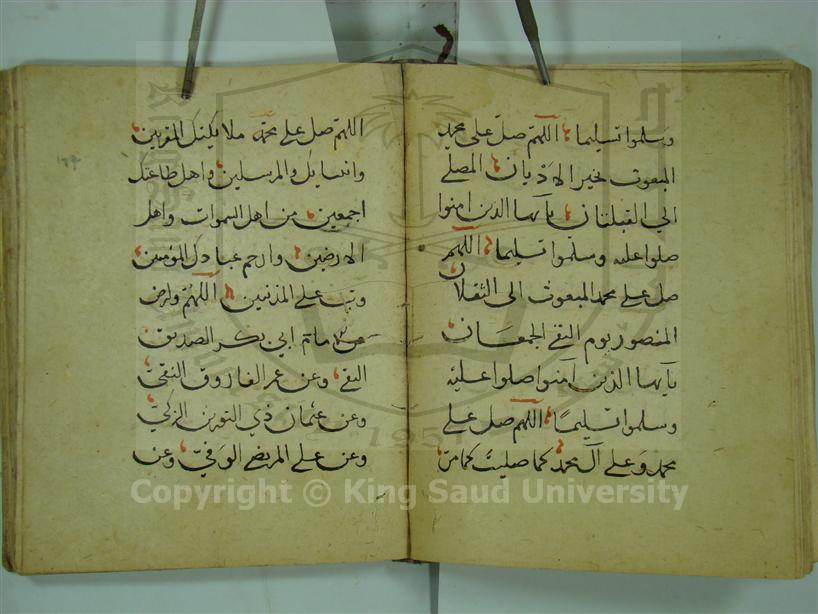 وسلموا تسليما اللهم صل على محمد
المبعوث بخير الاديان المصلي
الي القبلتان يأيها الذين امنوا
صلوا عليه وسلموا تسليما اللهم
صل على محمد المبعوث الى الثقلان
المنصور يوم التقي الجمعان
يأيها الذين آمنوا صلوا عليه
وسلموا تسليمًا اللهم صل على
محمد وعلى آل محمد كما صليت
اللهم صل على محمد ملايكتك المقربين
وانبيايك والمرسلين واهل طاعتك
اجمعين من اهل السموات واهل
الارضين وارحم عبادك المؤمنين
وتب على المذنبين اللهم وارض
عن الامام ابي بكر الصديق
التقي وعن عمر الفاروق النقي
وعن عثمان ذي النورين الزكي
وعن على المرتضى الوفي وعن
Copyright © King Saud University
1957